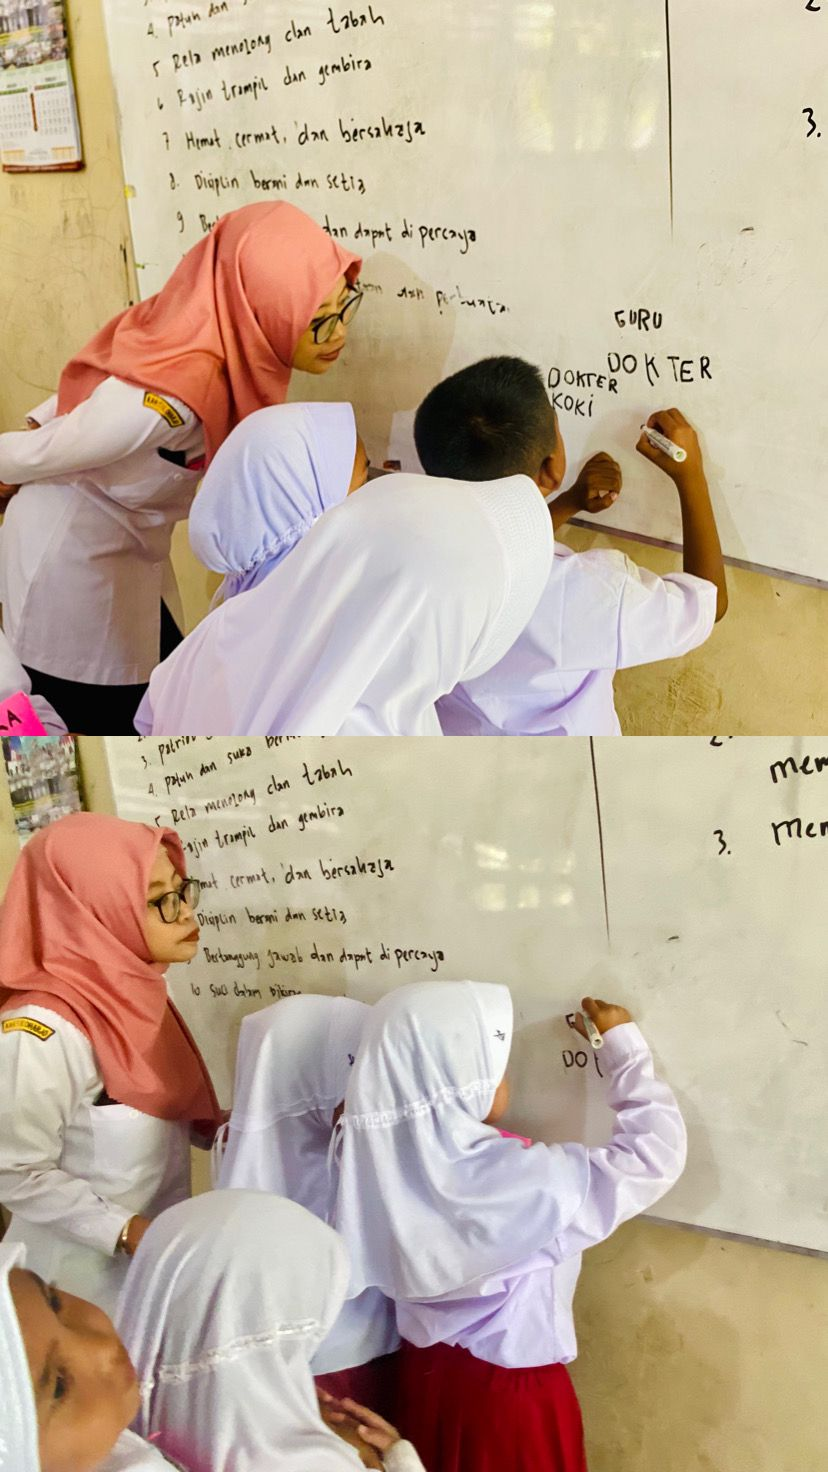 4. patuh dan
5 Rela menolong dan tabah
6 Rajin trampil dan gembira
7 Hemat, cermat, dan bersahaja
8. Disiplin berani dan setia
9 dan dapat di percaya
dan
GURU
DOKTER
DOKTER
KOKi
2
3.
A
3. patrio
4. patuh dan suka
5 Rela menolong dan tabah
ajin trampil dan gembira
mat, cermat, dan bersahaja
Disiplin berani dan setia
Bertanggung jawab dan dapat di percaya
10 suci dalam
DO
2.
mem
3. mem